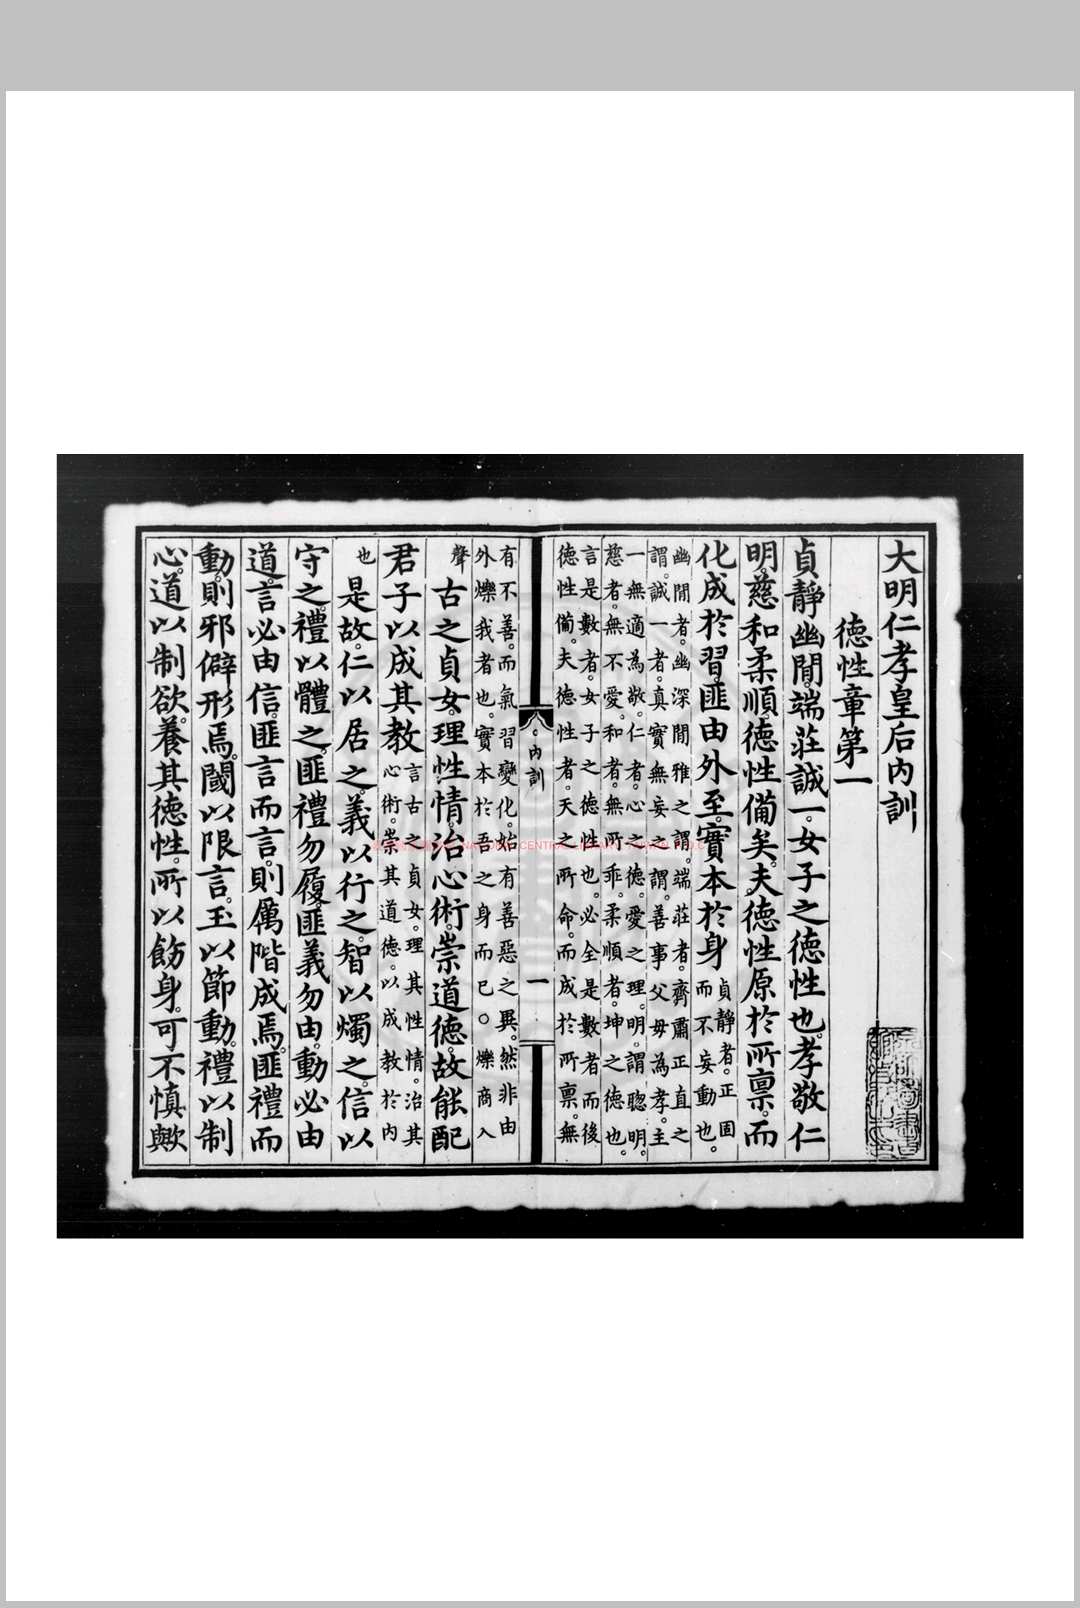 大明仁孝皇后內訓
德性章第一
貞靜幽閒。端莊誠一。女子之德性也。孝敬仁
明。慈和柔順。德性備矣。夫德性原於所稟。而
化成於習。匪由外至。實本於身
貞靜者。正固
而不妄動也。
幽閒者。幽深閒雅之謂。端莊者。齊肅正直之
謂。誠一者。真實無妄之謂。善事父母為孝。主
一無適為敬。仁者。心之德。愛之理。明。謂聰明。
慈者。無不愛。和者。無所乖。柔順者。坤之德也。
言是數者。女子之德性也。必全是數者而後
德性備。夫德性者。天之所命。而成於所稟。無
內訓
一
有不善。而氣習變化。始有善惡之異。然非由
外爍我者也。實本於吾之身而已○爍商入
聲
古之貞女。理性情。治心術。崇道德。故能配
君子以成其教
言古之貞女。理其性情。治其
心術。崇其道德。以成教於內
也
是故仁以居之。義以行之。智以燭之。信以
守之。禮以體之。匪禮勿履。匪義勿由。動必由
道。言必由信。匪言而言。則厲階成焉。匪禮而
動。則邪僻形焉。閾以限言。玉以節動。禮以制
心。道以制欲。養其德性。所以飭身。可不慎歟
NATIONAL CENTRAL LIBRARY,TAIWAN,R.O.C